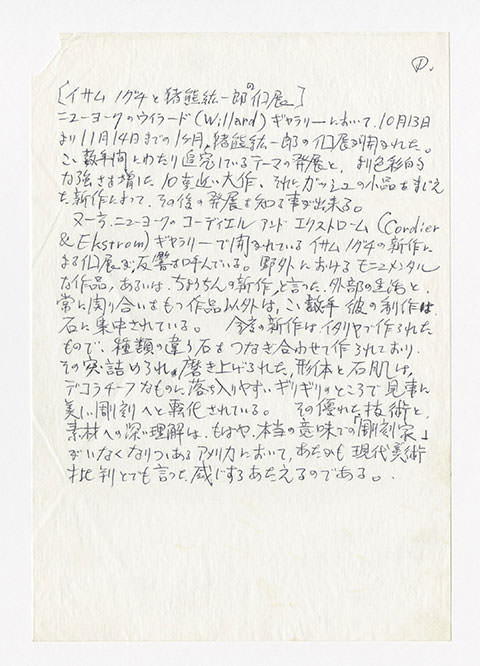 ①.
[イサム ノグチと猪熊弦一郎の個展]
ニューヨークのウイラード(Willard)ギャラリーにおいて、10月13日
より11月14日までの1ヶ月、猪熊弦一郎の個展が開かれた。
この数年間にわたり追究しているテーマの発展と、より色彩的な
力強さを増した10室近い大作、それにガッシュの小品をまじえ
た新作によって、その後の発展を知る事が出来る。
又一方、ニューヨークのコーディエル アンド エクストローム(Cordier
& Ekstrom)ギャラリーで開かれているイサム ノグチの新作に
よる個展が、反響を呼んでいる。野外におけるモニュメンタル
な作品、あるいは、ちょうちんの新作と言った、外部の生活と
常に関り合いをもつ作品以外は、この数年 彼の制作は、
石に集中されている。 今度の新作はイタリヤで作られた
もので、種類の違う石をつなぎ合わせて作られており、
その突詰められ、磨き上げられた、形体と石肌は、
デコラチーフなものに落ち入りやすい ギリギリのところで見事に
美しい彫刻へと転化されている。 その優れた技術と、
素材への深い理解は、もはや、本当の意味での「彫刻家」
がいなくなりつつあるアメリカにおいて、あたかも現代美術
批判とでも言った感じすらあたえるのである。